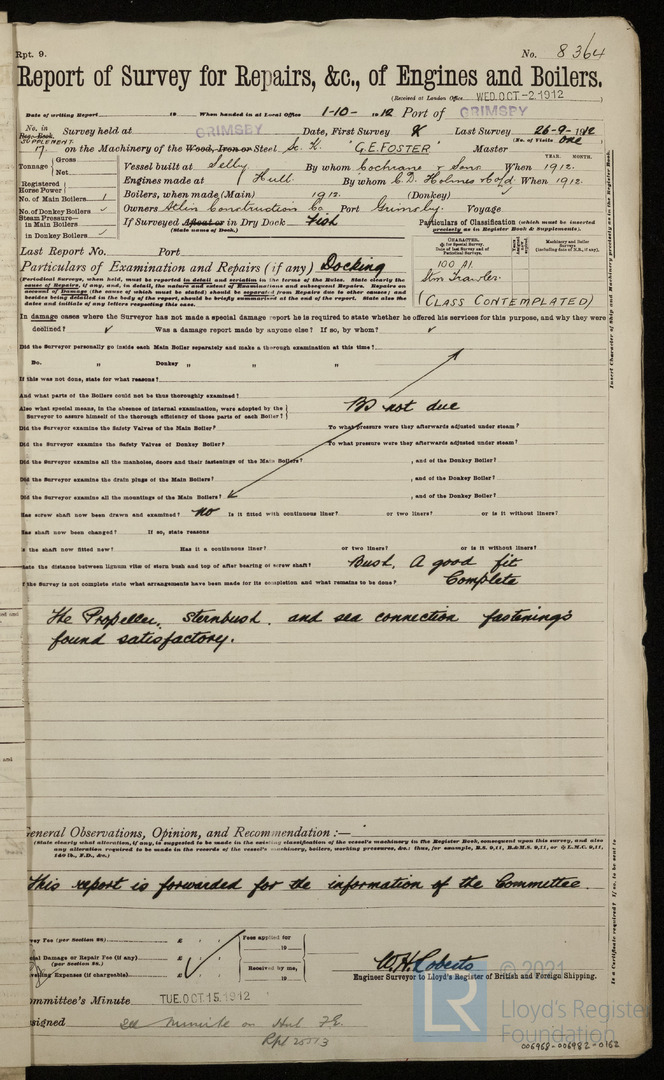 Rpt. 9.
No. 8364
Report of Survey for Repairs, &c., of Engines and Boilers.
(Received at London Office WED. OCT -2 1912)
Date of writing Report 19 When handed in at Local Office 1-10-1912 Port of GRIMSBY
No. in Reg. Book. Survey held at GRIMSBY Date, First Survey Last Survey 26-9-1912
SUPPLEMENT. (No. of Visits one
17 on the Machinery of the Wood, Iron or Steel Sc. K. "G.E. FOSTER" Master
Tonnage Gross Net
Vessel built at Selby By whom Cochrane & Sons When 1912
YEAR. MONTH.
Registered Horse Power
Engines made at Hull By whom C.D. Holmes & Co Ld When 1912
No. of Main Boilers 1
Boilers, when made (Main) 1912 (Donkey)
No. of Donkey Boilers
Owners Construction Co Port Grimsby Voyage
Steam Pressure—
in Main Boilers
If Surveyed Afloat or in Dry Dock Fish
(State name of Dock.)
in Donkey Boilers
Particulars of Classification (which must be inserted precisely as in Register Book & Supplements).
Last Report No. Port
Particulars of Examination and Repairs (if any) Docking
CHARACTER.
100 A1.
Stm Trawler.
(CLASS CONTEMPLATED)
(Periodical Surveys, when held, must be reported in detail and seriatim in the terms of the Rules. State clearly the
cause of Repairs, if any, and, in detail, the nature and extent of Examinations and subsequent Repairs. Repairs on
account of Damage (the cause of which must be stated) should be separated from Repairs due to other causes; and
besides being detailed in the body of the report, should be briefly summarised at the end of the report. State also the
dates and initials of any letters respecting this case.
In damage cases where the Surveyor has not made a special damage report he is required to state whether he offered his services for this purpose, and why they were
declined? Was a damage report made by anyone else? If so, by whom?
Did the Surveyor personally go inside each Main Boiler separately and make a thorough examination at this time?
Do. " Donkey " " "
If this was not done, state for what reasons?
And what parts of the Boilers could not be thus thoroughly examined?
Also what special means, in the absence of internal examination, were adopted by the
Surveyor to assure himself of the thorough efficiency of those parts of each Boiler?
BS not due
Did the Surveyor examine the Safety Valves of the Main Boiler? To what pressure were they afterwards adjusted under steam?
Did the Surveyor examine the Safety Valves of Donkey Boiler? To what pressure were they afterwards adjusted under steam?
Did the Surveyor examine all the manholes, doors and their fastenings of the Main Boilers? , and of the Donkey Boiler?
Did the Surveyor examine the drain plugs of the Main Boilers? , and of the Donkey Boiler?
Did the Surveyor examine all the mountings of the Main Boilers? , and of the Donkey Boiler?
Has screw shaft now been drawn and examined? no Is it fitted with continuous liner? or two liners? or is it without liners?
Has shaft now been changed? If so, state reasons
Is the shaft now fitted new? Has it a continuous liner? or two liners? or is it without liners?
State the distance between lignum vitæ of stern bush and top of after bearing of screw shaft? Bush. A good fit
If the Survey is not complete state what arrangements have been made for its completion and what remains to be done? Complete
The Propeller, sternbush, and sea connection fastenings
found satisfactory.
General Observations, Opinion, and Recommendation:—
(State clearly what alteration, if any, is suggested to be made in the existing classification of the vessel's machinery in the Register Book, consequent upon this survey, and also
any alteration required to be made in the records of the vessel's machinery, boilers, working pressures, &c.: thus, for example, B.S. 9,11, B.&M.S. 9,11, or L.M.C. 9,11,
140 lb., F.D., &c.)
This report is forwarded for the information of the Committee.
Survey Fee (per Section 28) £ : : Fees applied for
Special Damage or Repair Fee (if any) £ : : 19
(per Section 28.)
Received by me,
Travelling Expenses (if chargeable) £ : : 19
W.H. Roberts
Engineer Surveyor to Lloyd's Register of British and Foreign Shipping.
Committee's Minute TUE. OCT. 15. 1912
Assigned See minute on Hull F.E.
Rpt
© 2021
Lloyd's Register
Foundation
006968-006982-0162
Insert Character of Ship and Machinery precisely as in the Register Book.
Is a Certificate required? If so, to be sent to